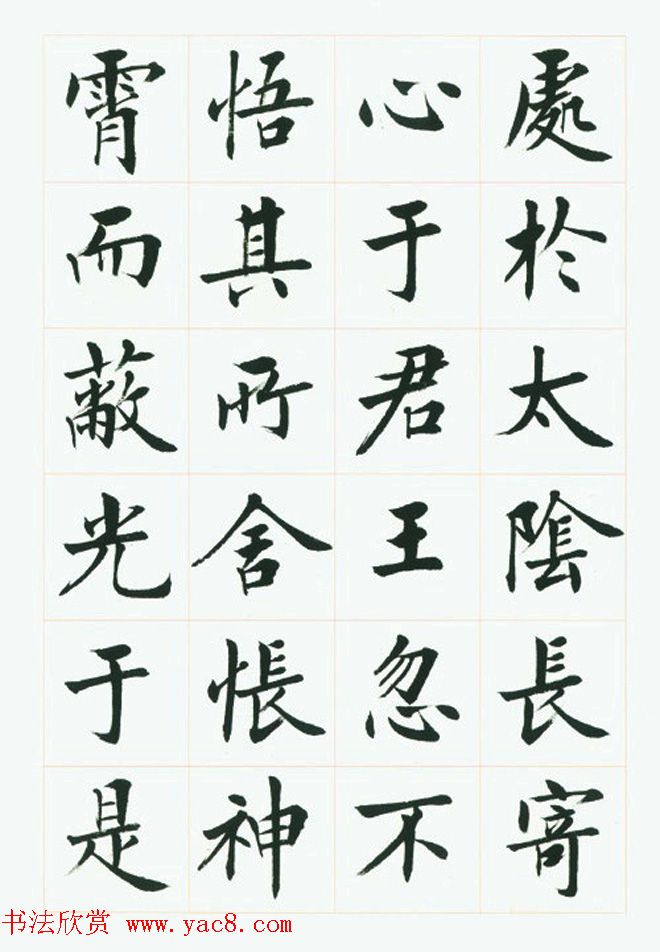 處於太陰長寄
心于君王忽不
悟其所舍悵神
霄而蔽光于是
书法欣赏 www.yac8.com